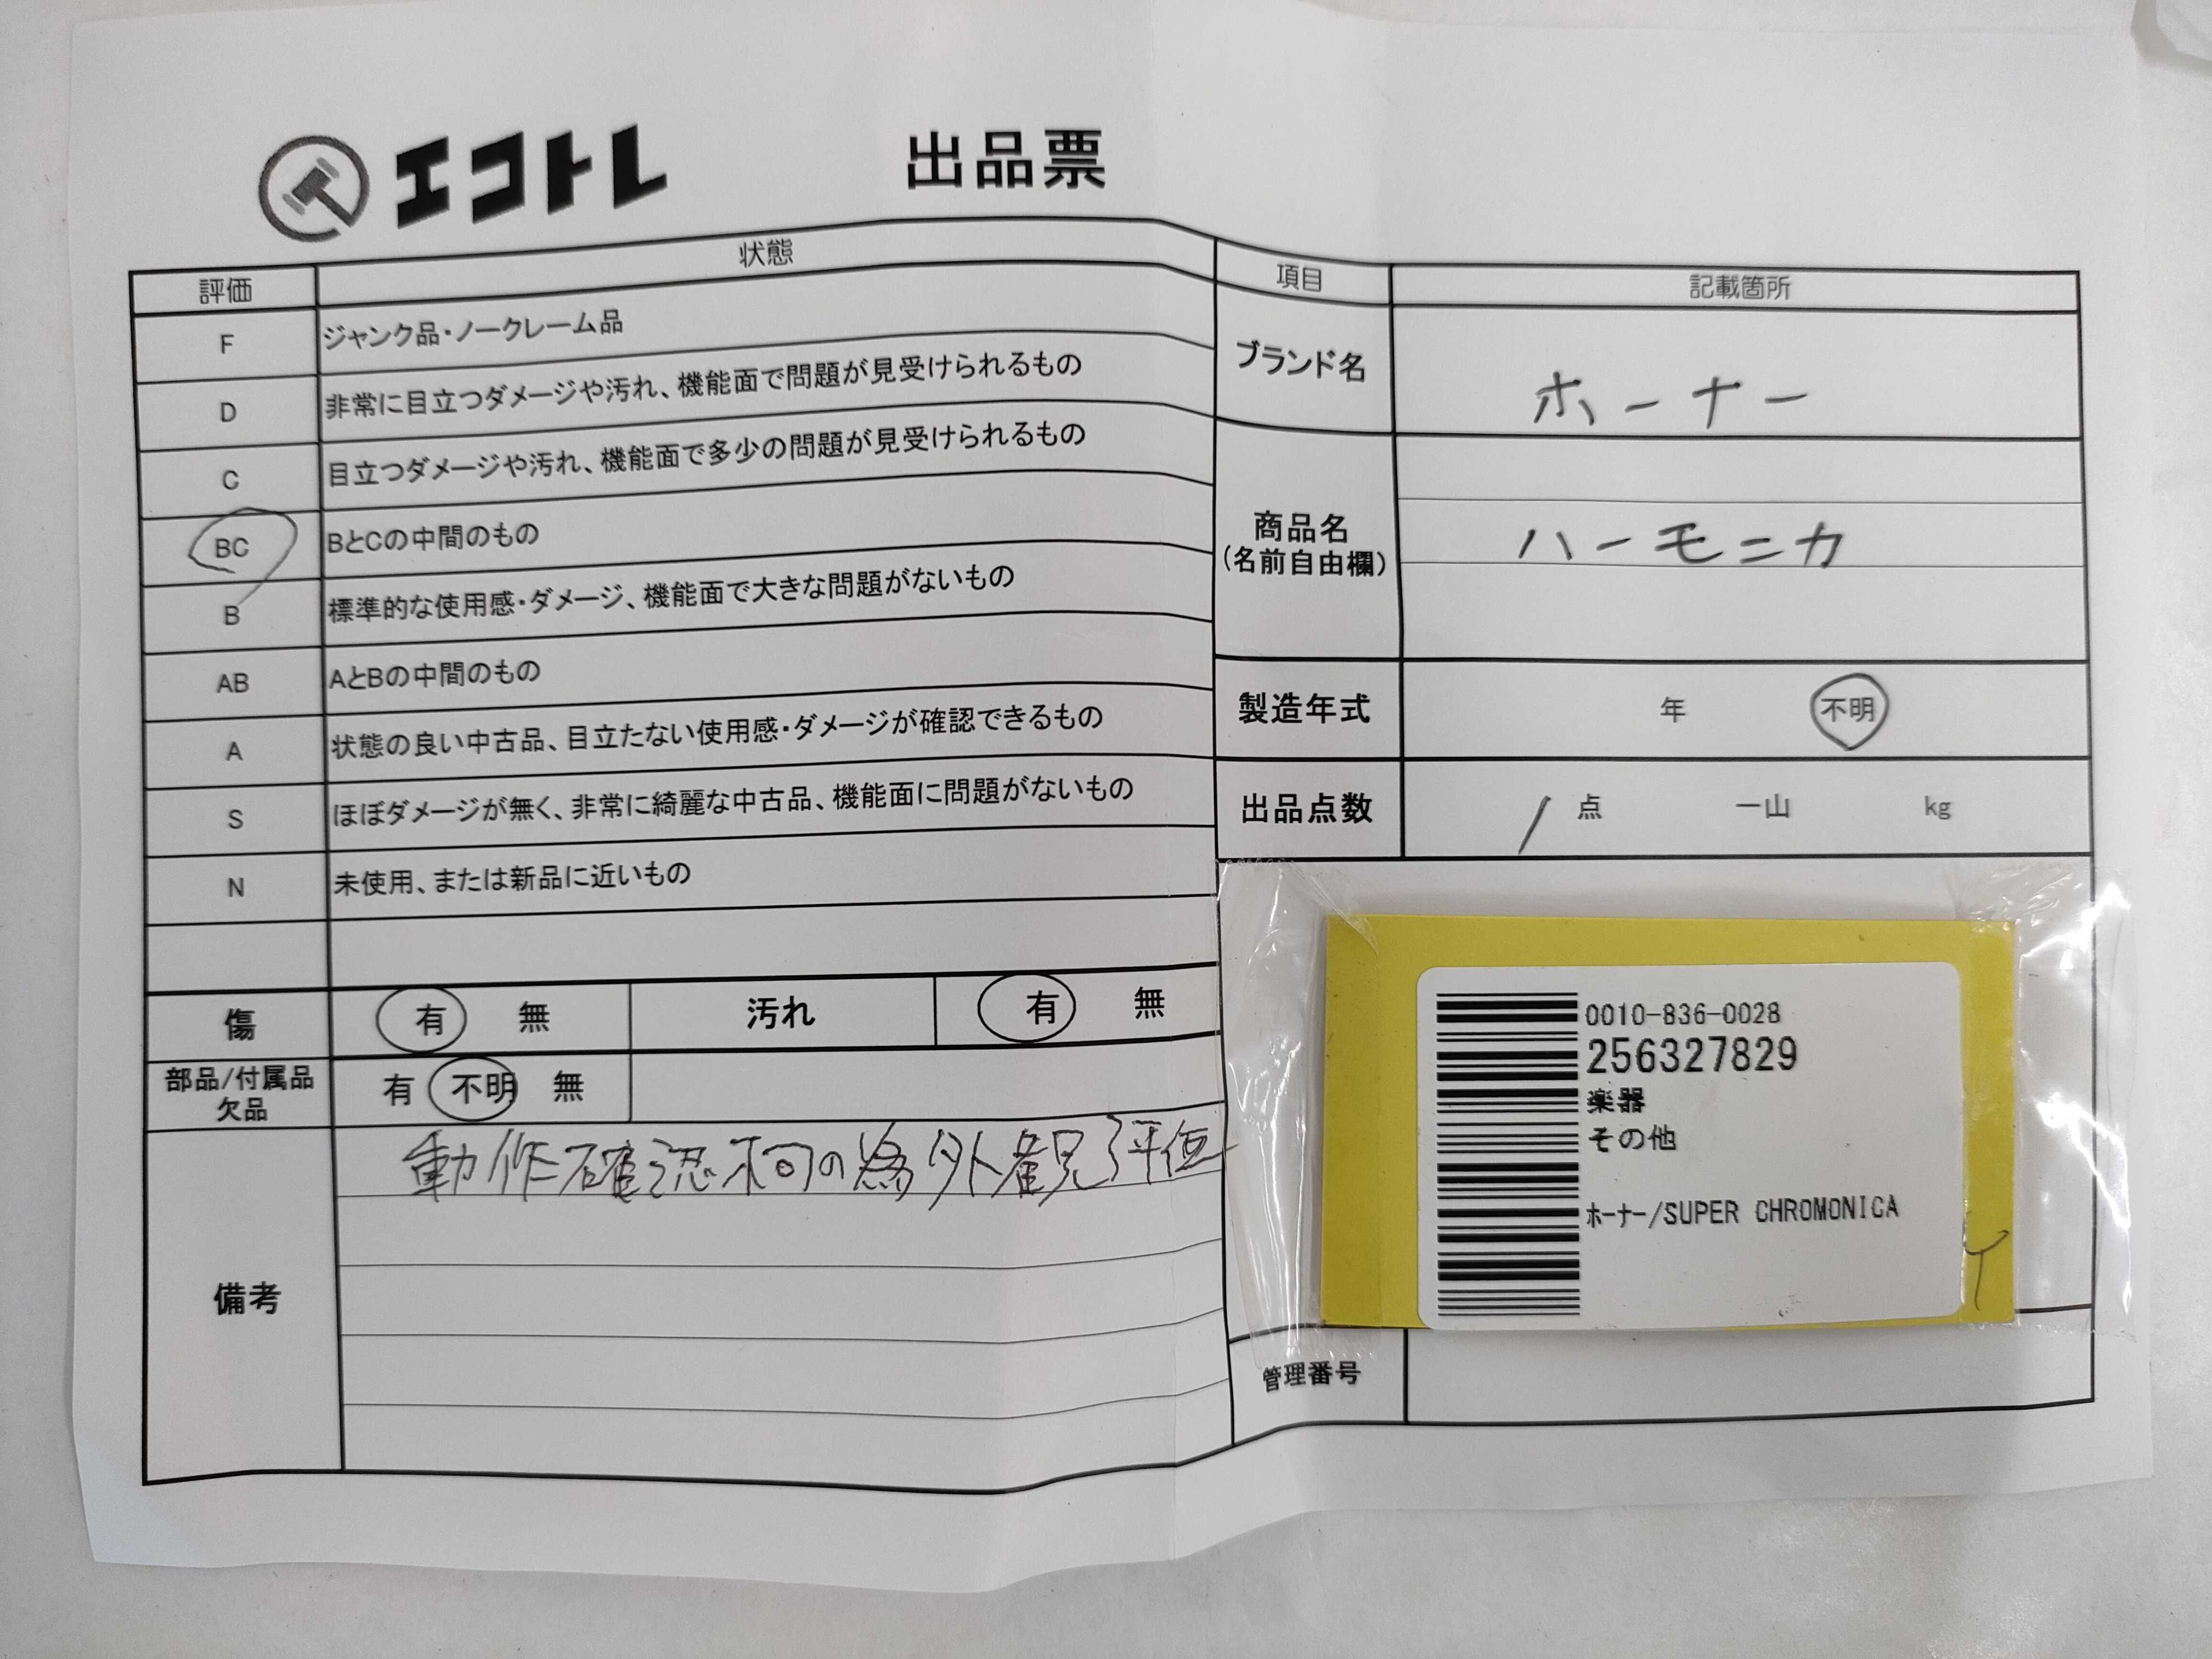 エコトレ
出品票
評価 状態
F ジャンク品・ノークレーム品
D 非常に目立つダメージや汚れ、機能面で問題が見受けられるもの
C 目立つダメージや汚れ、機能面で多少の問題が見受けられるもの
BC BとCの中間のもの
B 標準的な使用感・ダメージ、機能面で大きな問題がないもの
AB AとBの中間のもの
A 状態の良い中古品、目立たない使用感・ダメージが確認できるもの
S ほぼダメージが無く、非常に綺麗な中古品、機能面に問題がないもの
N 未使用、または新品に近いもの
傷 有 無 汚れ 有 無
部品/付属品
欠品
有 不明 無
備考
動作確認不可の為外観評価
項目 記載箇所
ブランド名 ホーナー
商品名
(名前自由欄)
ハーモニカ
製造年式 年 不明
出品点数 1 点 一山 kg
0010-836-0028
256327829
楽器
その他
ホーナー/SUPER CHROMONICA
管理番号